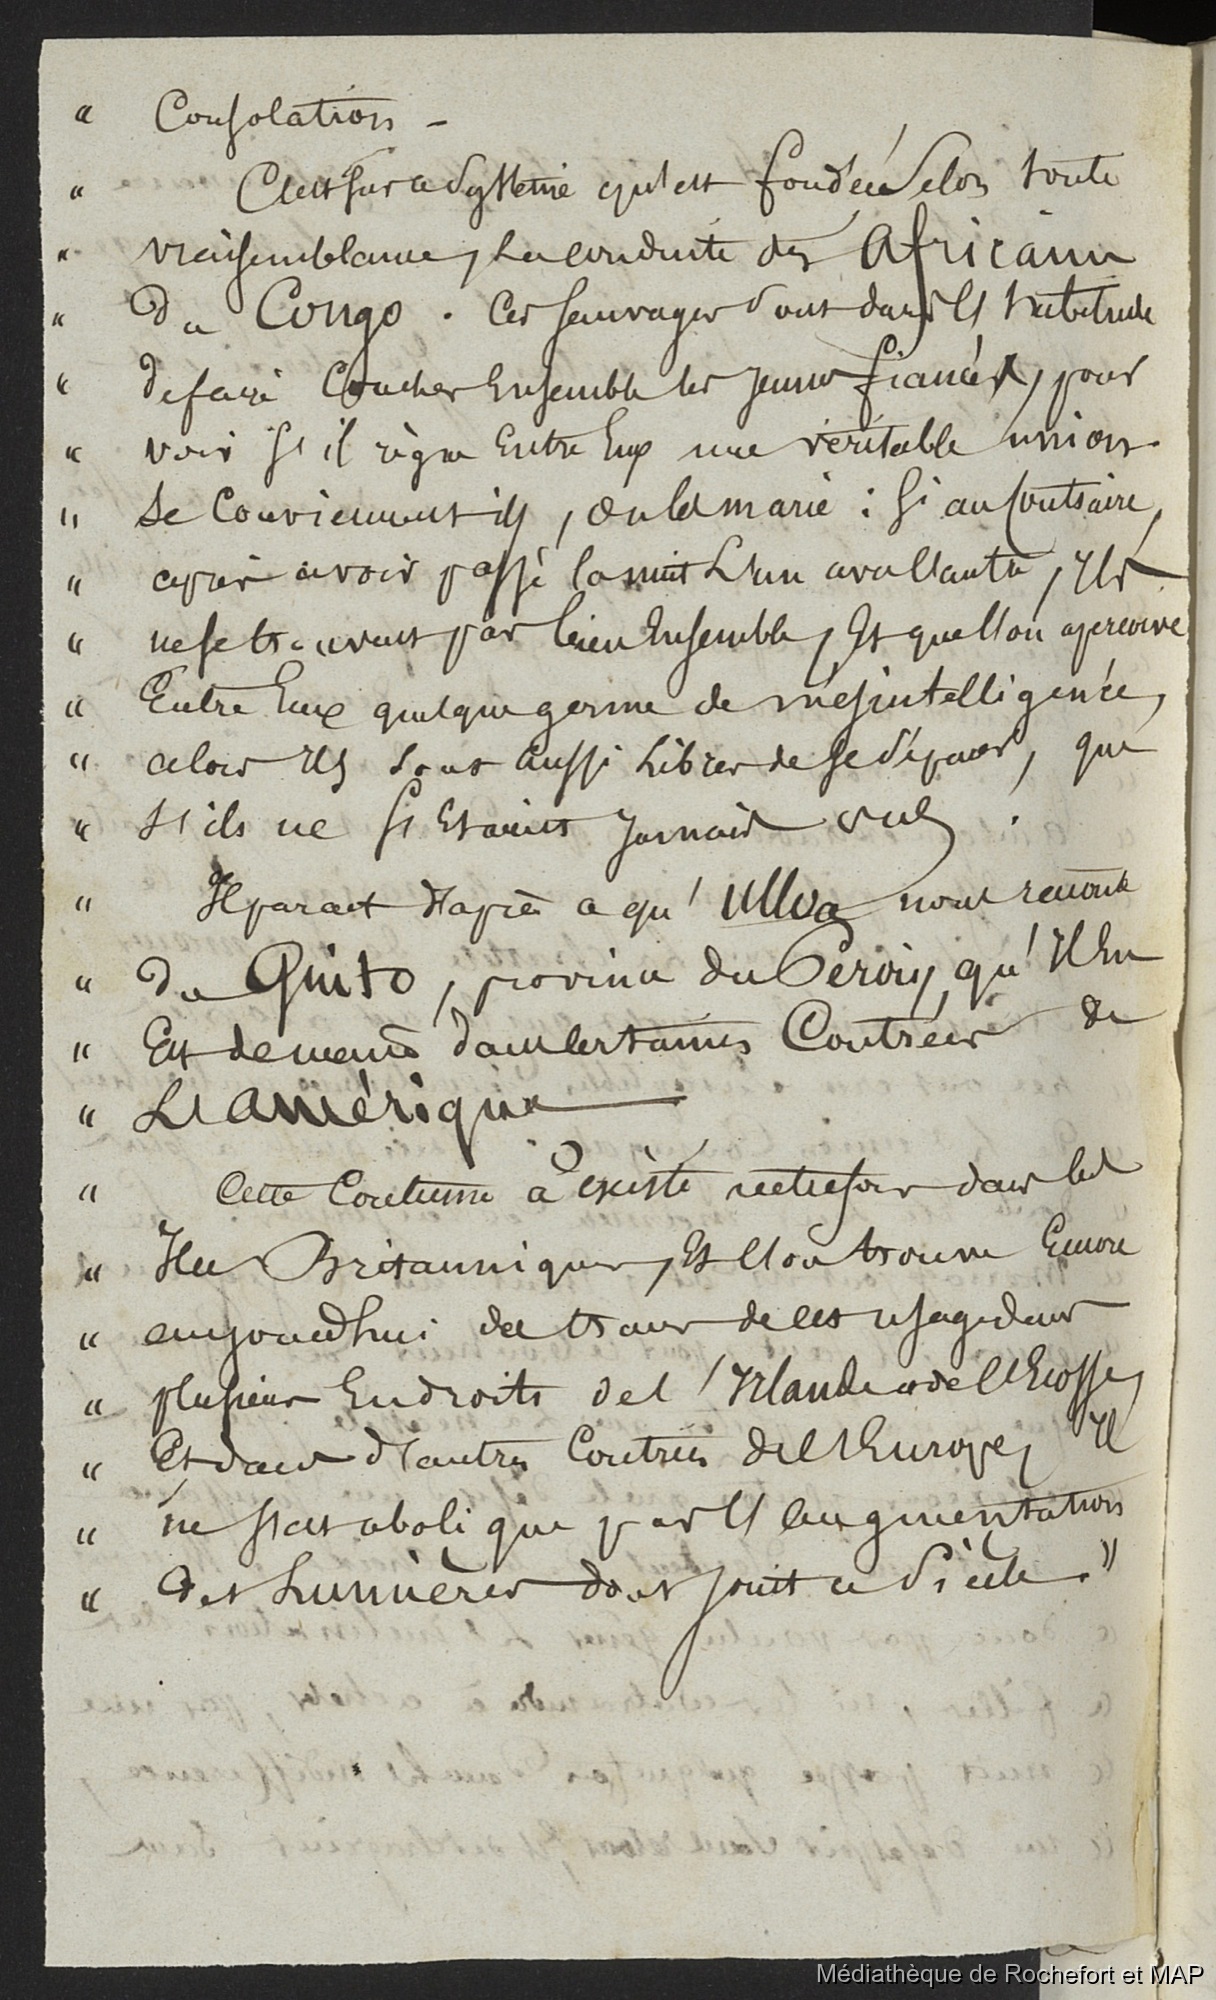 " Consolation -
" C'est sur ce Systeme qu'est fondée Selon toute
" vraisemblance, La conduite des Africains
" Du Congo . Ces sauvages Sont dans l'habitude
" de faire Coucher Ensemble les jeunes fiancés, pour
" voir S'il règne Entre Eux une véritable union.
" Se Conviennent ils, on les marie : Si au Contraire,
" après avoir passé la nuit L'un avec l'autre, Ils
" ne se trouvent pas bien Ensemble, Et que l'on apercoive
" Entre Eux quelque germe de mésintelligence,
" alors ils Sont aussi Libres de se Séparer, que
" S'ils ne S'Etaient Jamais vus .
" Il parait d'après ce qu'Ulloa nous raconte
" De Quito, province du Perou, qu'Il En
" Est de meme dans certaines Contrées de
" L'amérique
" Cette Coutume à existé autrefois dans les
" Iles Britanniques, Et l'on trouve Encore
" aujourd'hui des traces de cet usage dans
" plusieurs Endroits de l'Irlande et de l'Ecosse,
" Et dans d'autres Contrées de l'Europe, Il
" ne s'est aboli que par l'augmentation
" Des Lumières dont jouit ce Siècle."
Médiathèque de Rochefort et MAP